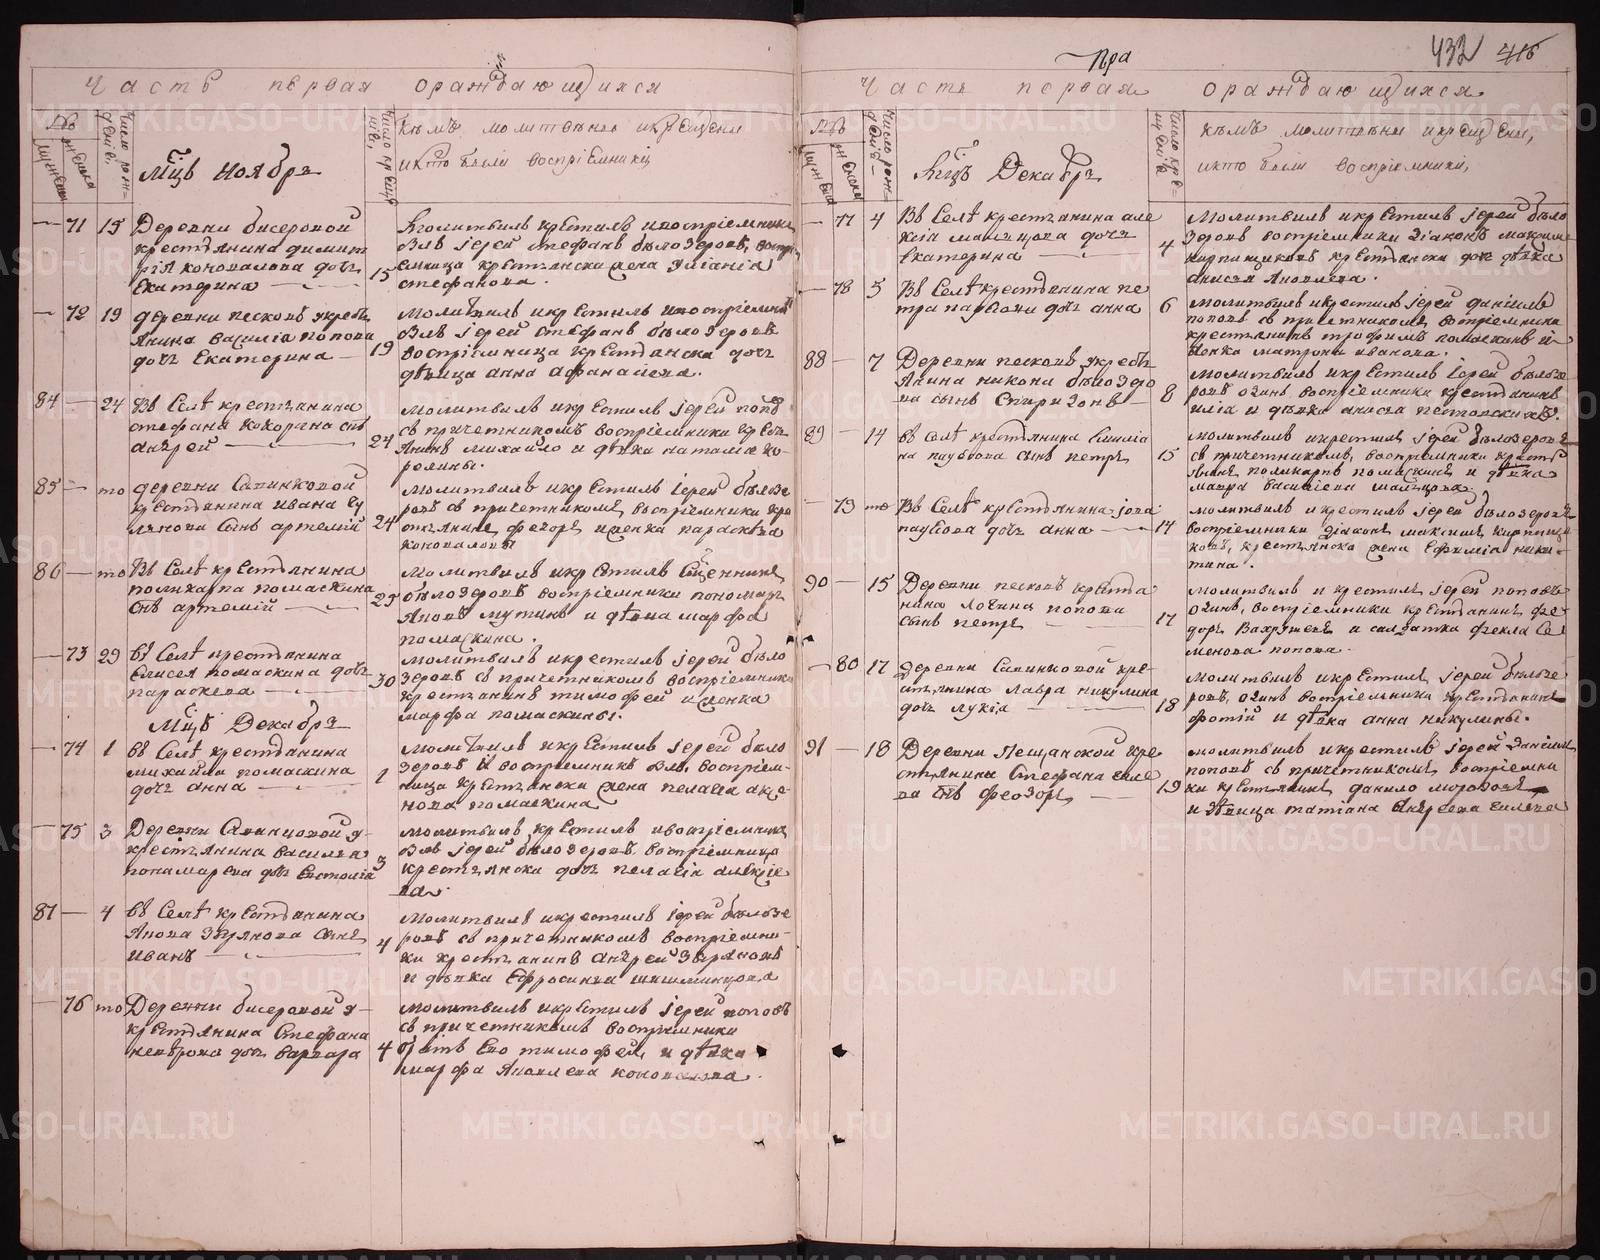 Часть первая о раждающихся
№
Мцъ Ноябрь
кѣмъ молитвены и крещены
и кто были воспріемники
71 15 Деревни бисеровой
крестьянина димит
рія коновалова дочь
Екатерина
15
Молитвилъ крестилъ и воспріемникъ
былъ іерей стефанъ бѣлозеровъ, воспрі
емница крестьянска жена Уліанія
стефанова.
72 19 деревни песковъ у кресть
янина василіа попова
дочь Екатерина
19
Молитвилъ и крестилъ и воспріемникъ
былъ іерей стефанъ бѣлозеровъ
воспріемница крестьянска дочь
дѣвица анна афанасіева.
84 24 Въ Селѣ крестьянина
стефана кокорина снъ
андрей
24
молитвилъ и крестилъ іерей попов
съ причетникомъ воспріемники кресть
янинъ михайло и дѣвка наталіа ко-
ролины.
85 то деревни Савинковой
крестьянина ивана
сынъ артемій
24
молитвилъ и крестилъ іерей бѣлозе
ровъ съ причетникомъ, воспріемники кре
стьянинъ, феодоръ и женка параскева
коноваловы
86 то Въ Селѣ крестьянина
поликарпа помаскина
снъ артемій
25
молитвилъ и крестилъ Сщенникъ
бѣлозеровъ воспріемники пономарь
Яковъ мутинъ и дѣвка марфа
помаскина.
73 29 въ Селѣ крестьянина
Елисея помаскина дочь
параскева
30
молитвилъ и крестилъ іерей бѣло
зеровъ съ причетникомъ воспріемники
крестьянинъ тимофей и женка
марфа помаскины.
Мцъ Декабрь
74 1 въ Селѣ крестьянина
михайла помаскина
дочь анна
1
молитвилъ и крестилъ іерей бѣло
зеровъ и воспріемникъ былъ, воспріем-
ница крестьянска жена пелагіа
помаскина
75 3 Деревни у
крестьянина василья
пономарева дочь
3
молитвилъ, крестилъ и воспріемникъ
былъ іерей бѣлозеровъ воспріемница
крестьянска дочь пелагіа алексіе
ва.
87 4 въ Селѣ крестьянина
Якова Зырянова сынъ
иванъ
4
молитвилъ и крестилъ іерей бѣлозе
ровъ съ причетникомъ воспріемни-
ки крестьянинъ андрей Зыряновъ
и дѣвка Ефросинья шишминцова
76 то Деревни бисеровой у
крестьянина Стефана
дочь варвара
4
молитвилъ и крестилъ іерей поповъ
съ причетникомъ воспріемники
братъ Его тимофей и дѣвка
марфа Яковлева коновалова.
Пра
432 416
Часть первая о раждающихся
№
Мцъ Декабрь
кѣмъ молитвены и крещены,
и кто были воспріемники,
77 4 Въ Селѣ крестьянина але
ксія дочь
Екатерина
4
Молитвилъ и крестилъ іерей бѣло
зеровъ воспріемники діаконъ максимъ
кирпищиковъ крестьянска дочь дѣвка
анисья Яковлева.
78 5 Въ Селѣ крестьянина пе
тра паувова дочь анна
6
молитвилъ и крестилъ іерей даніилъ
поповъ съ причетникомъ воспріемники
крестьянинъ трофимъ помаскинъ и
женка матрона иванова.
88 7 Деревни песковъ у кресть
янина никона бѣлозеро
ва сынъ Спиридонъ
8
молитвилъ и крестилъ іерей бѣлозе
ровъ одинъ воспріемники крестьянинъ
иліа и дѣвка анисья
89 14 въ селѣ крестьянина
паувова сынъ петръ
15
молитвилъ и крестилъ іерей бѣлозеровъ
съ причетникомъ, воспріемники кресть
янинъ поликарпъ помаскинъ и дѣвка
мавра васіліева
79 то Въ Селѣ крестьянина іова
паувова дочь анна
14
молитвилъ и крестилъ іерей бѣлозеровъ
воспріемники діаконъ максимъ кирпищи
ковъ, крестьянска жена Ефиміа ники-
тина.
90 15 Деревни песковъ крестья
нина логина попова
сынъ петръ
17
молитвилъ и крестилъ іерей поповъ
одинъ, воспріемники крестьянинъ фе
доръ Вахрушевъ и салдатка фекла Се
менова попова.
80 17 деревни Савинковой кре-
стьянина лавра никулина
дочь лукіа
18
молитвилъ и крестилъ іерей бѣлозе
ровъ, одинъ воспріемники крестьянинъ
фотій и дѣвка анна никулины.
91 18 Деревни Пещанской кре
стьянина Стефана
снъ феодоръ
19
молитвилъ и крестилъ іерей даніилъ
поповъ съ причетникомъ воспріемни
ки крестьянинъ данило морозовъ
и дѣвица татіана андреева